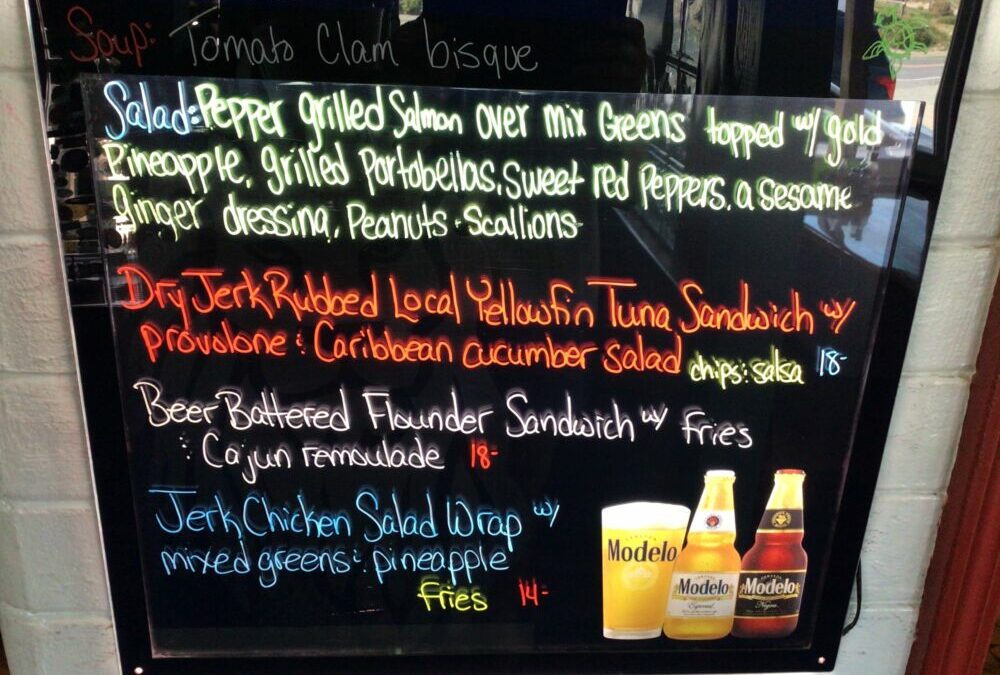 Soup: Tomato Clam bisque
Salad: Pepper grilled Salmon over mix Greens topped w/ gold
Pineapple, grilled Portobellas, Sweet red Peppers, a sesame
ginger dressing, Peanuts + Scallions
Dry Jerk Rubbed Local Yellowfin Tuna Sandwich w/
provolone & Caribbean cucumber salad chips & salsa 18-
Beer Battered Flounder Sandwich w/ fries
& Cajun remoulade 18-
Jerk Chicken Salad Wrap w/
mixed greens & pineapple
fries 14-
Modelo
Modelo
Especial
Modelo
Negra